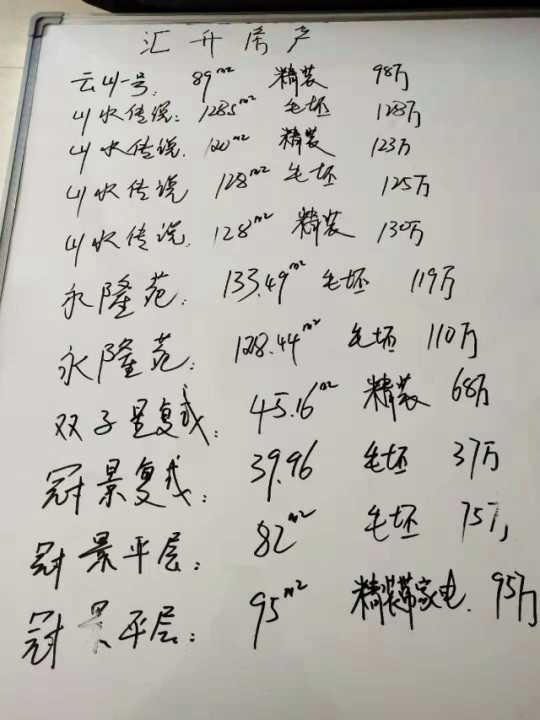 汇升房产
云山一号: 89m² 精装 98万
山水传说: 128.5m² 毛坯 128万
山水传说. 120m² 精装 123万
山水传说 128m² 毛坯 125万
山水传说. 128m² 精装 130万
永隆苑: 133.49m² 毛坯 119万
永隆苑: 128.44m² 毛坯 110万
双子星复式: 45.16m² 精装 68万
冠景复式: 39.96 毛坯 37万
冠景平层: 82m² 毛坯 75万
冠景平层: 95m² 精装带家电. 95万